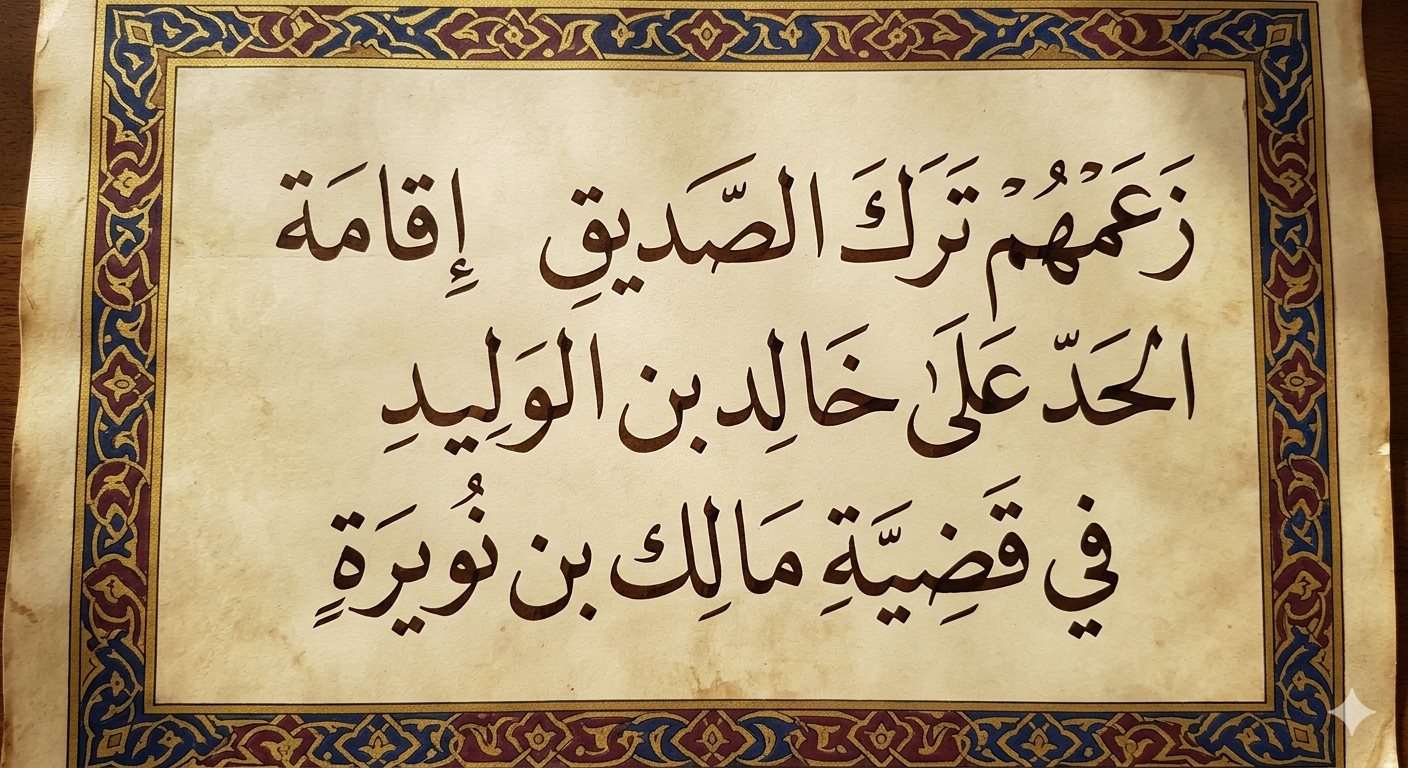 زَعَمْهُمْ تَرَكَ الصَّديقِ إِقامَة
الحَدّ عَلَى خَالِد بن الوَلِيدِ
في قَضِيَّةِ مَالِك بن نُويرَةٍ